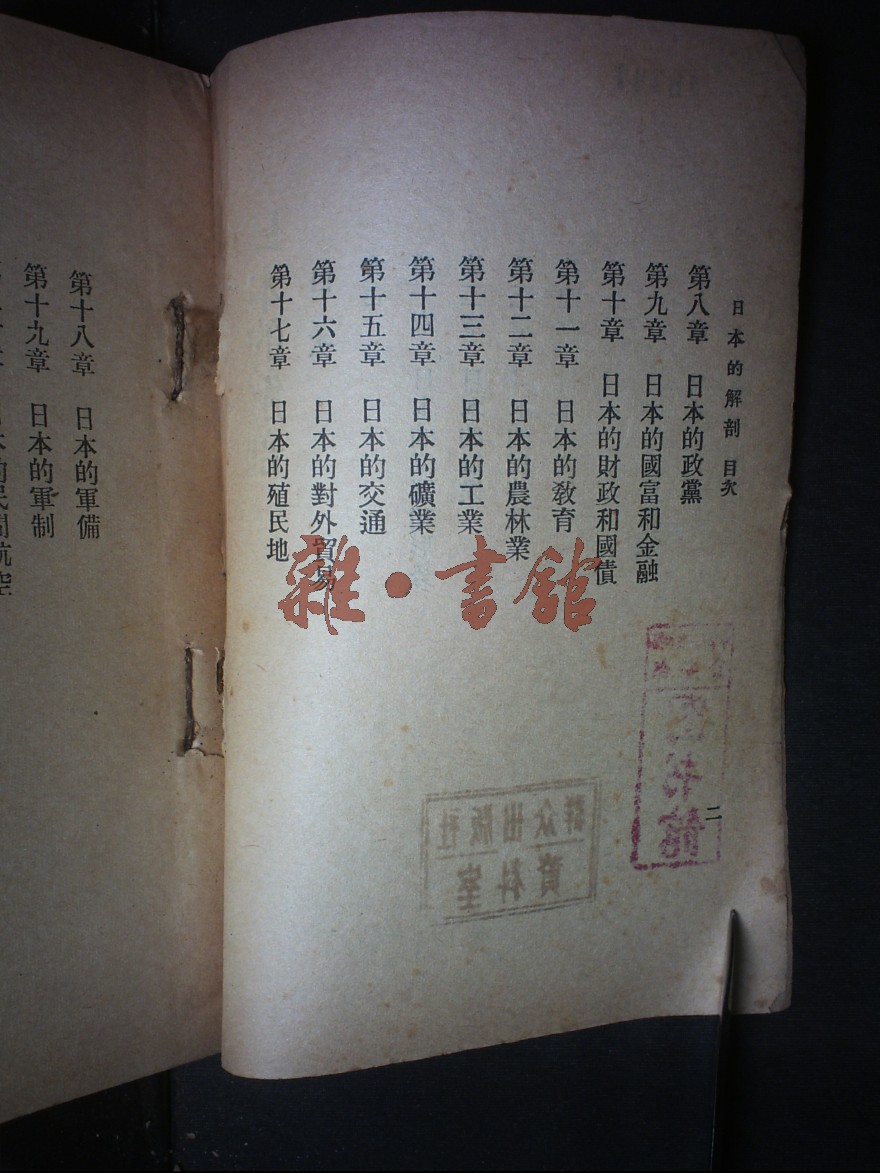 日本的解剖 目次
第八章 日本的政黨
第九章 日本的國富和金融
第十章 日本的財政和國債
第十一章 日本的教育
第十二章 日本的農林業
第十三章 日本的工業
第十四章 日本的礦業
第十五章 日本的交通
第十六章 日本的對外貿易
第十七章 日本的殖民地
二
第十八章 日本的軍備
第十九章 日本的軍制
本的民間航空
雜·書館
群众出版社
資料室